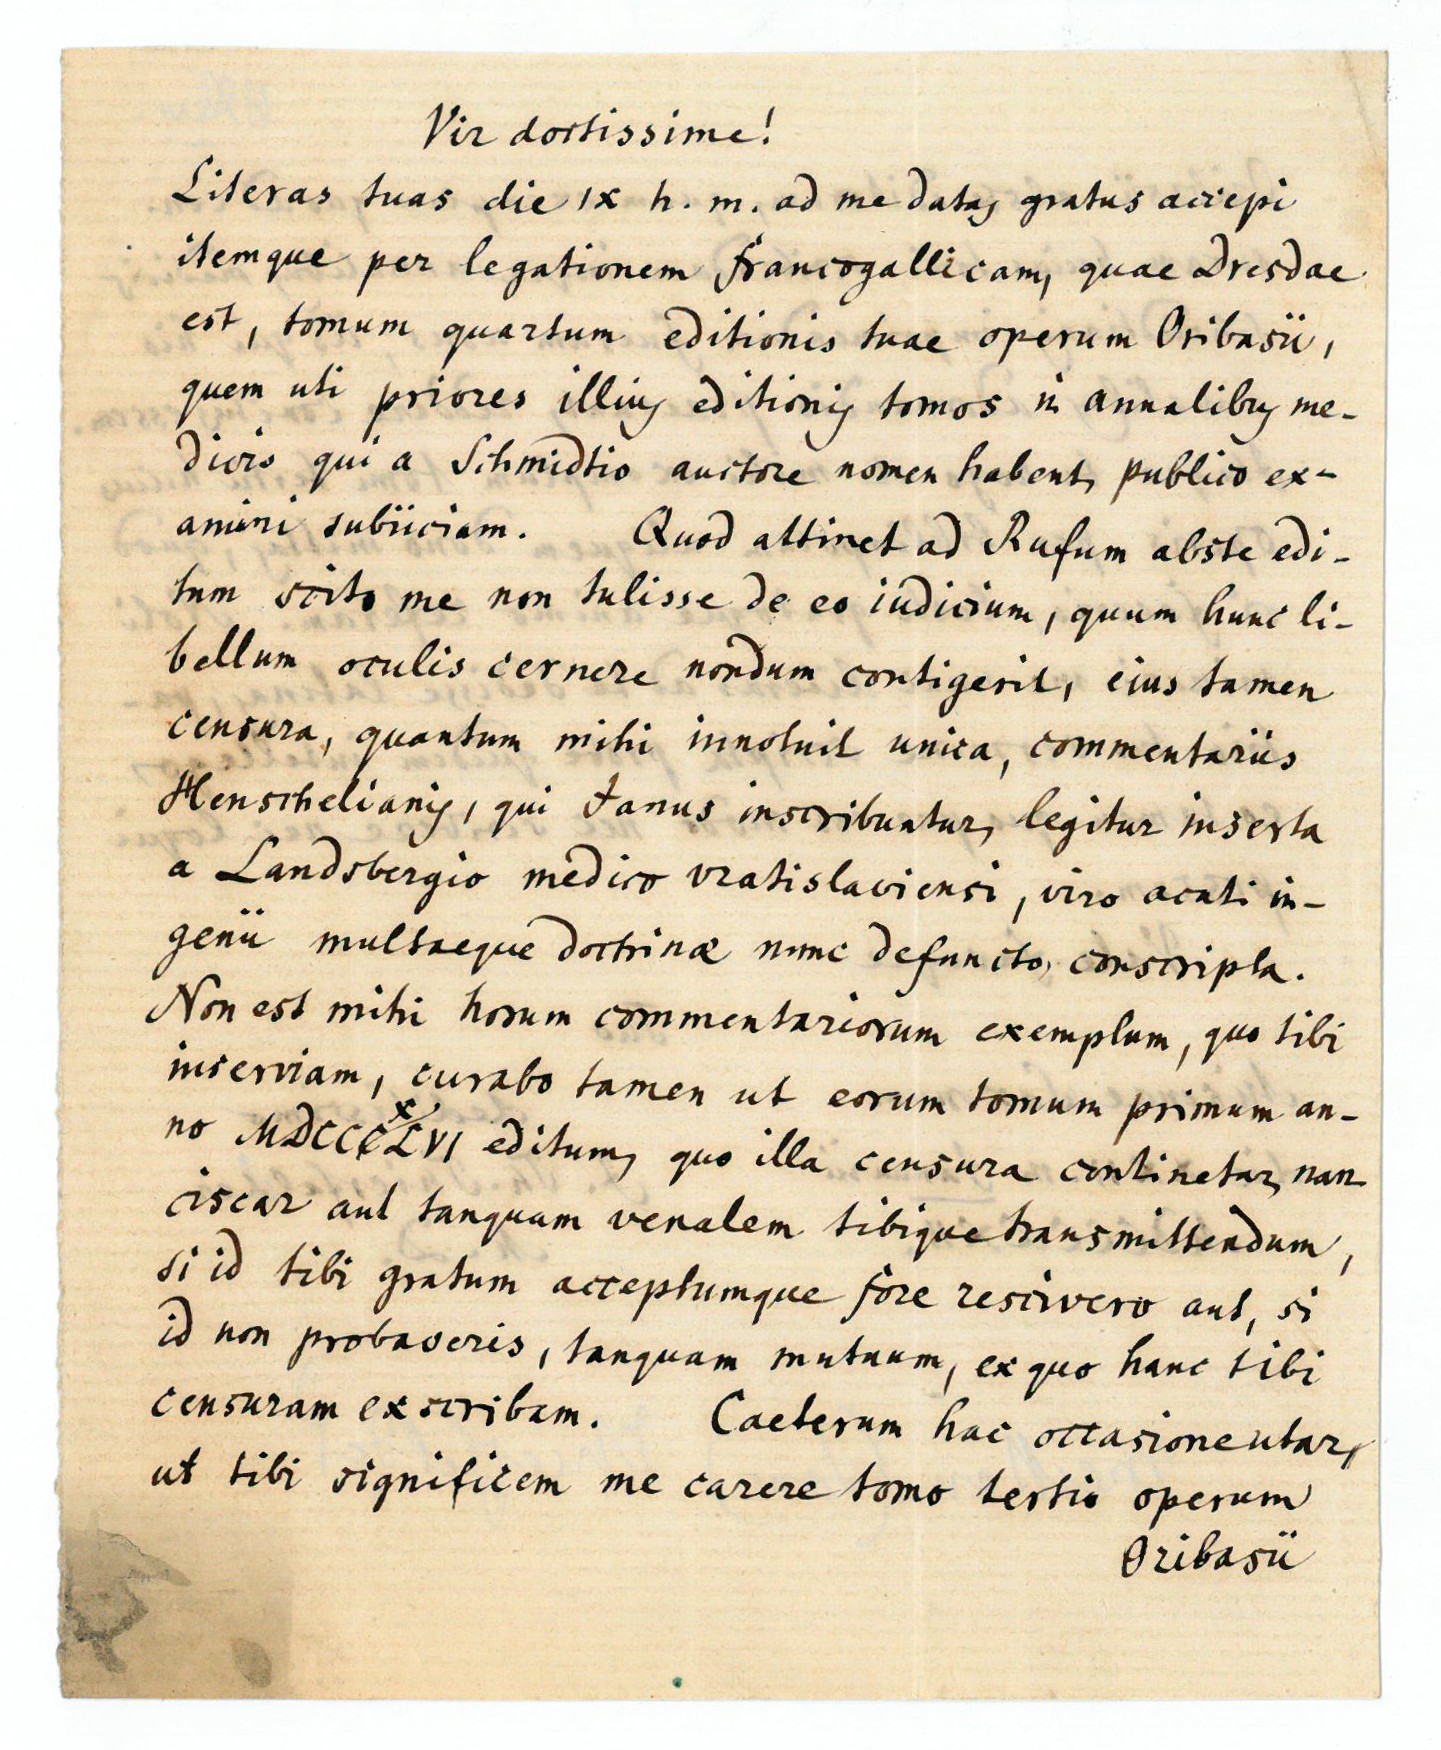 Vir doctissime!
Literas tuas die IX h. m. ad me datas gratus accepi
itemque per legationem francogallicam, quae Dresdae
est, tomum quartum editionis tuae operum Oribasii,
quem uti priores illius editionis tomos in annalibus me-
dicis qui a Schmidtio auctore nomen habent, publico ex-
amini subiiciam. Quod attinet ad Rufum abste edi-
tum scito me non tulisse de eo iudicium, quum hunc li-
bellum oculis cernere nondum contigerit, eius tamen
censura, quantum mihi innotuit unica, commentariis
Henschelianis, qui Janus inscribuntur, legitur inserta
a Landsbergio medico vratislaviensi, viro acuti in-
genii multaeque doctrinæ nunc defuncto, conscripta.
Non est mihi horum commentariorum exemplum, quo tibi
inserviam, curabo tamen ut eorum tomum primum an-
no MDCCCXLVI editum, quo illa censura continetur, nan-
ciscar aut tanquam venalem tibique transmittendum,
si id tibi gratum acceptumque fore rescivero aut, si
id non probaveris, tanquam mutuum, ex quo hanc tibi
censuram exscribam. Caeterum hac occasione utar,
ut tibi significem me carere tomo tertio operum
Oribasii